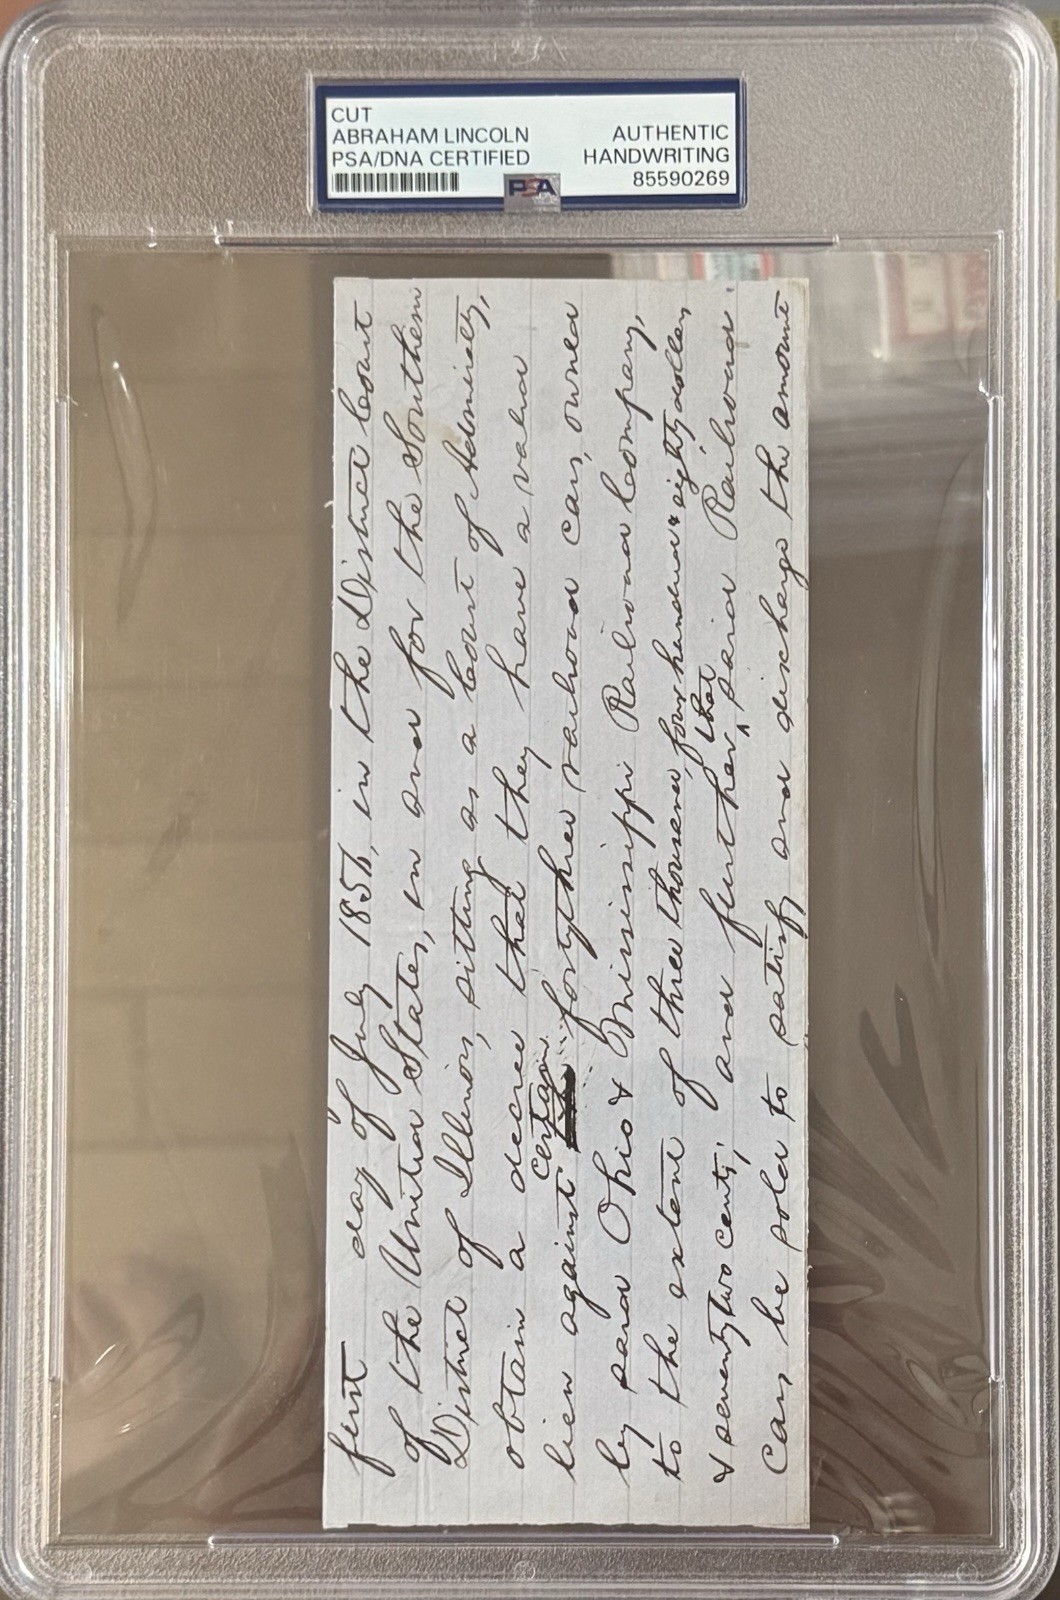 CUT
ABRAHAM LINCOLN AUTHENTIC
PSA/DNA CERTIFIED HANDWRITING
85590269
PSA
first day of July 1856, in the District Court
of the United States, in and for the Southern
District of Illinois, sitting as a Court of Admiralty,
obtain a decree that they have a valid
certain
lien against fortythree railroad cars, owned
by said Ohio & Mississippi Railroad Company,
to the extent of three thousand, four hundred & eighty dollars
& seventytwo cents, and further, that said Railroad
cars be sold to satisfy and discharge the amount